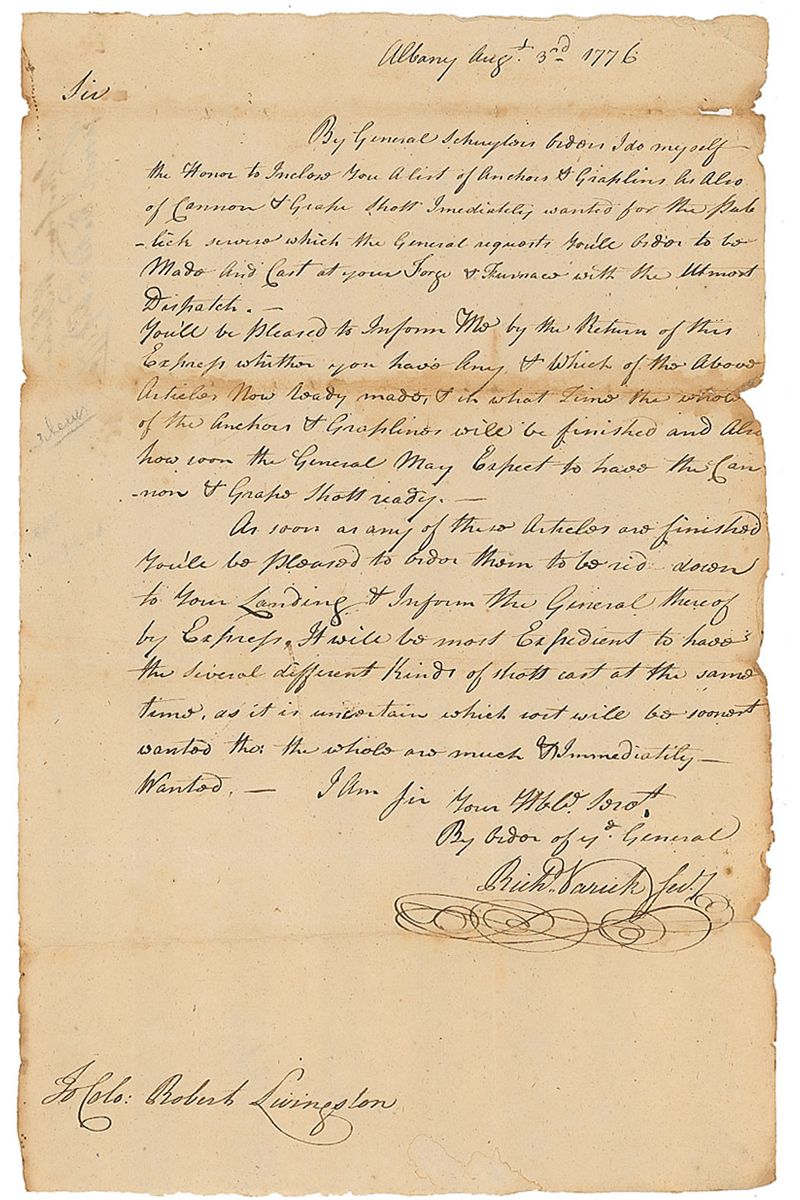 Albany Augt. 3rd 1776
Sir
By General Schuylers orders I do myself
the Honor to Inclose You A list of Anchors & Graplins As Also
of Cannon & Grape Shott Imediately wanted for the Pub
-lick service which the General requests You'll order to be
Made And Cast at your Forge & Furnace with the Utmost
Dispatch. —
You'll be pleased to Inform Me by the Return of this
Express whether you have Any, & Which of the Above
Articles Now ready made, & in what Time the whole
of the Anchors & Graplines will be finished and Also
how soon the General May Expect to have the Can
-non & Grape Shott ready. —
As soon as any of these Articles are finished
You'll be pleased to order them to be rid down
to Your Landing & Inform the General thereof
by Express. It will be most Expedient to have
the several different Kinds of shott cast at the same
time, as it is uncertain which sort will be soonest
wanted tho: the whole are much & Immediatily —
Wanted. — I Am Sir Your Hble. Servt.
By order of ye. General
Richd. Varick Secy
To Colo: Robert Livingston